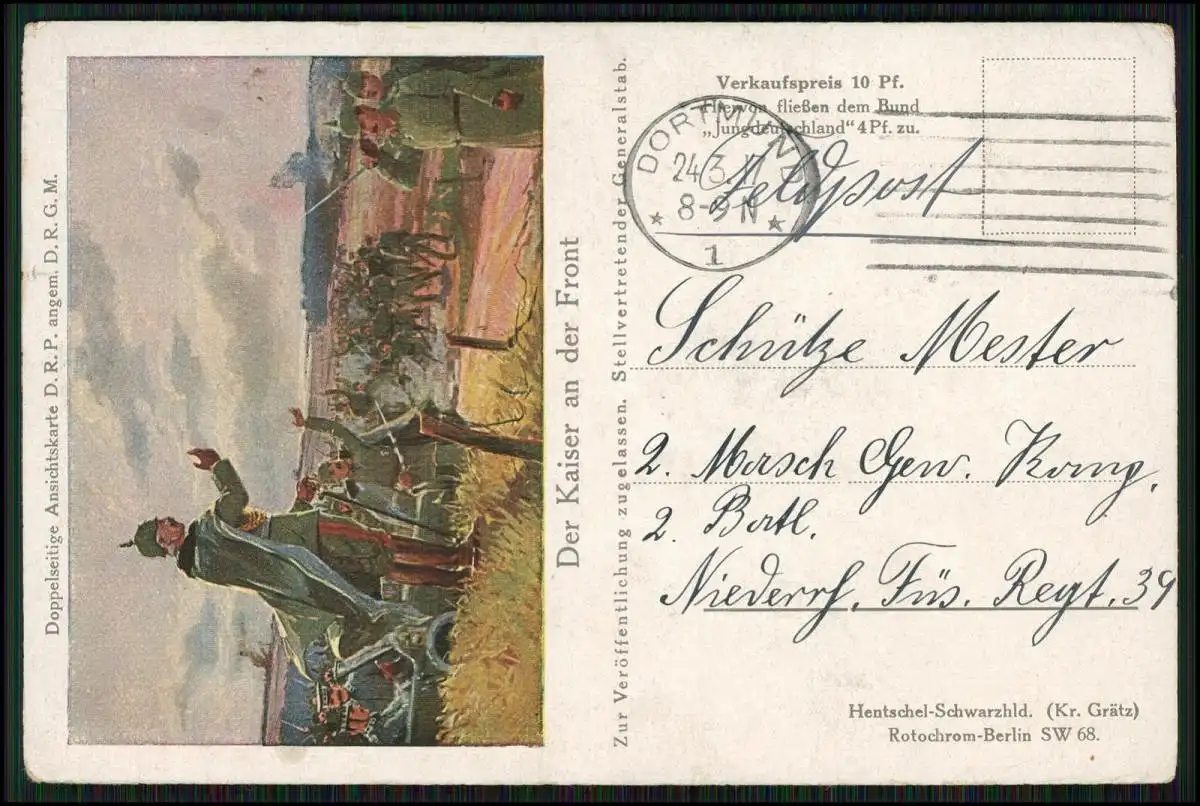 Doppelseitige Ansichtskarte D. R. P. angem. D. R. G. M.
Der Kaiser an der Front
Zur Veröffentlichung zugelassen. Stellvertretender Generalstab.
Verkaufspreis 10 Pf.
Hiervon fließen dem Bund
„Jungdeutschland“ 4 Pf. zu.
DORTMUND
24.3.17
8-9 N
* 1 *
Feldpost
Schütze Mester
2. Masch Gew. Komp.
2. Batl.
Niederrh. Füs. Regt. 39
Hentschel-Schwarzhld. (Kr. Grätz)
Rotochrom-Berlin SW 68.